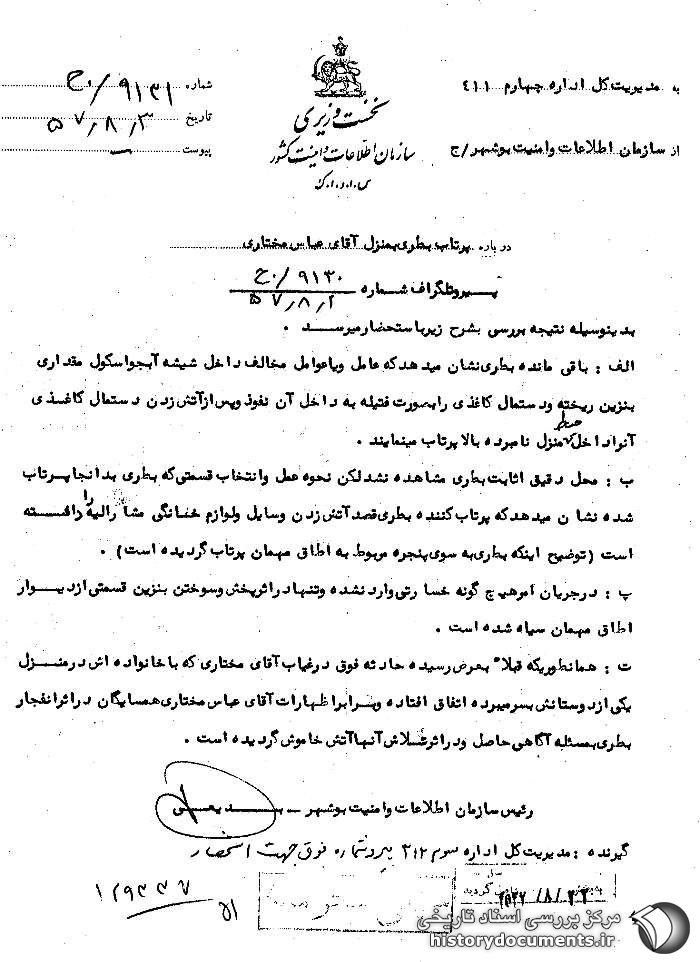 به مدیریت کل اداره چهارم ۴۱۱
از سازمان اطلاعات وامنیت بوشهر/ج
نخست وزیری
سازمان اطلاعات و امنیت کشور
س.ا.و.ا.ک
شماره ۹۱۳۱/ه۰ح
تاریخ ۵۷/۸/۳
پیوست —
درباره پرتاب بطری بمنزل آقای عباس مختاری
پیروتلگراف شماره ۹۱۳۰/ه۰ح
۵۷/۸/۲
بدینوسیله نتیجه بررسی بشرح زیرباستحضارمیرسد .
الف : باقی مانده بطری نشان میدهدکه عامل ویاعوامل مخالف داخل شیشه آبجواسکول مقداری
بنزین ریخته ودستمال کاغذی رابصورت فتیله به داخل آن نفوذ وپس ازآتش زدن دستمال کاغذی
آنرا داخل منزل نامبرده بالا پرتاب مینمایند .
ب : محل دقیق اثابت بطری مشاهده نشدلکن نحوه عمل وانتخاب قسمتی که بطری بدانجا پرتاب
شده نشان میدهدکه پرتاب کننده بطری قصد آتش زدن وسایل ولوازم خانگی مشارالیه را داشته
است (توضیح اینکه بطری به سوی پنجره مربوط به اطاق مهمان پرتاب گردیده است) .
پ : درجریان امرهیچ گونه خسارتی وارد نشده وتنها دراثرپخش وسوختن بنزین قسمتی ازدیوار
اطاق مهمان سیاه شده است .
ت : همانطوریکه قبلاً بعرض رسیده حادثه فوق درغیاب آقای مختاری که باخانواده اش درمنزل
یکی ازدوستانش بسرمیبرده اتفاق افتاده وبنابراظهارات آقای عباس مختاری همسایگان دراثرانفجار
بطری بمسئله آگاهی حاصل ودراثرتلاش آنهاآتش خاموش گردیده است .
رئیس سازمان اطلاعات وامنیت بوشهر –
گیرنده : مدیریت کل اداره سوم ۳۱۲ پیرو شماره فوق جهت استحضار
۲۵۳۷/۸/۲۳
مرکز بررسی اسناد تاریخی
historydocuments.ir